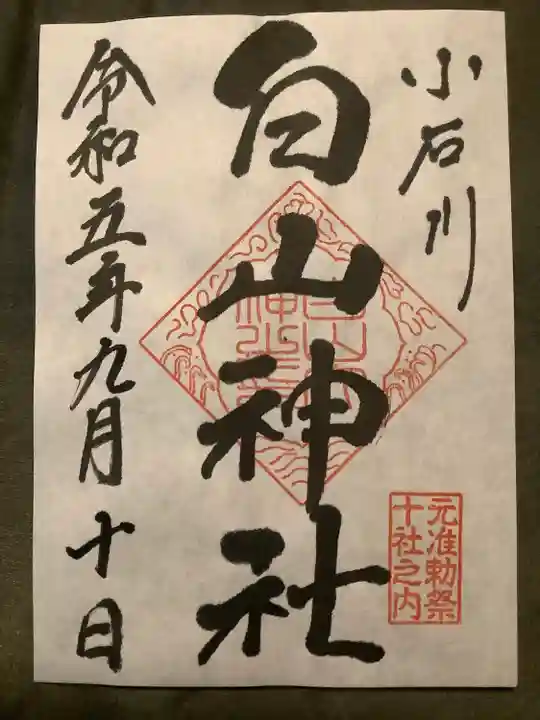 小石川
元准勅祭
十社之内
白山神社
令和五年九月十日